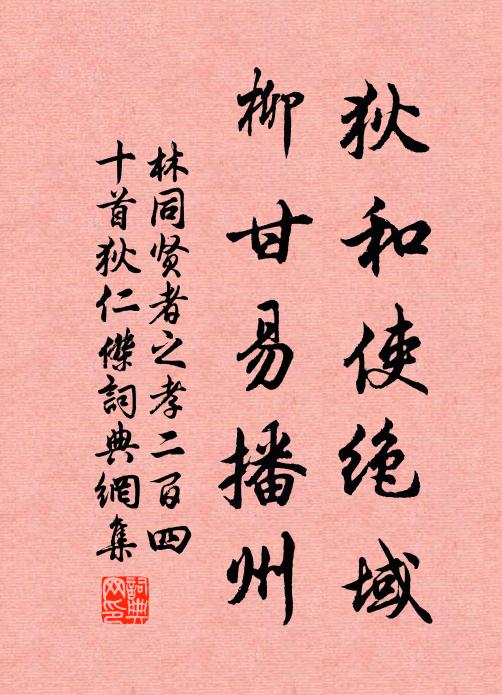 狄和使绝域
柳甘易播州
林同贤者之孝二百四
十首狄仁傑詞典網集
詞典网印